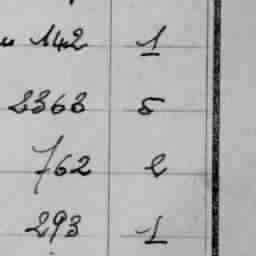 " 142 1
2363 5
762 2
293 1